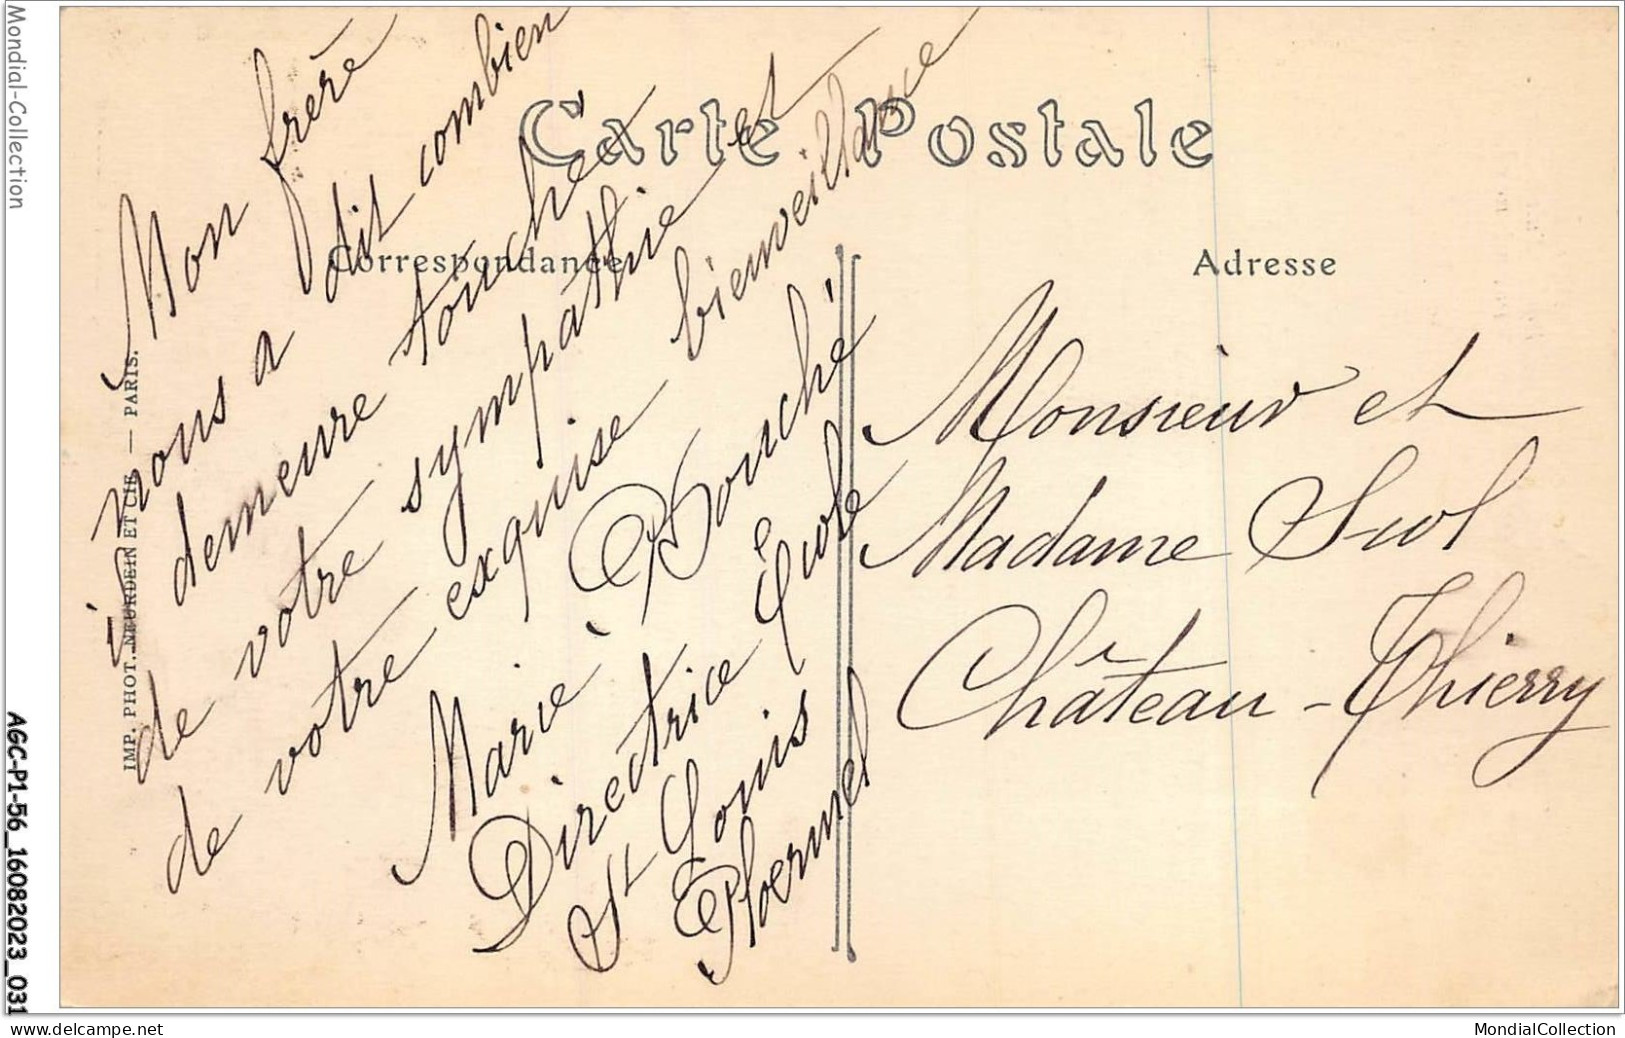 Carte Postale
Correspondance
Adresse
Mon frère
nous a dit combien
il demeure touché et
de votre sympathie et
de votre exquise bienveillance
Marie Bouché
Directrice École
St Louis
Ploermel
Monsieur et
Madame
Château-Thierry
IMP. PHOT. NEURDEIN ET CIE. — PARIS.
Mondial-Collection
AGC-P1-56_16082023_031
www.delcampe.net
MondialCollection